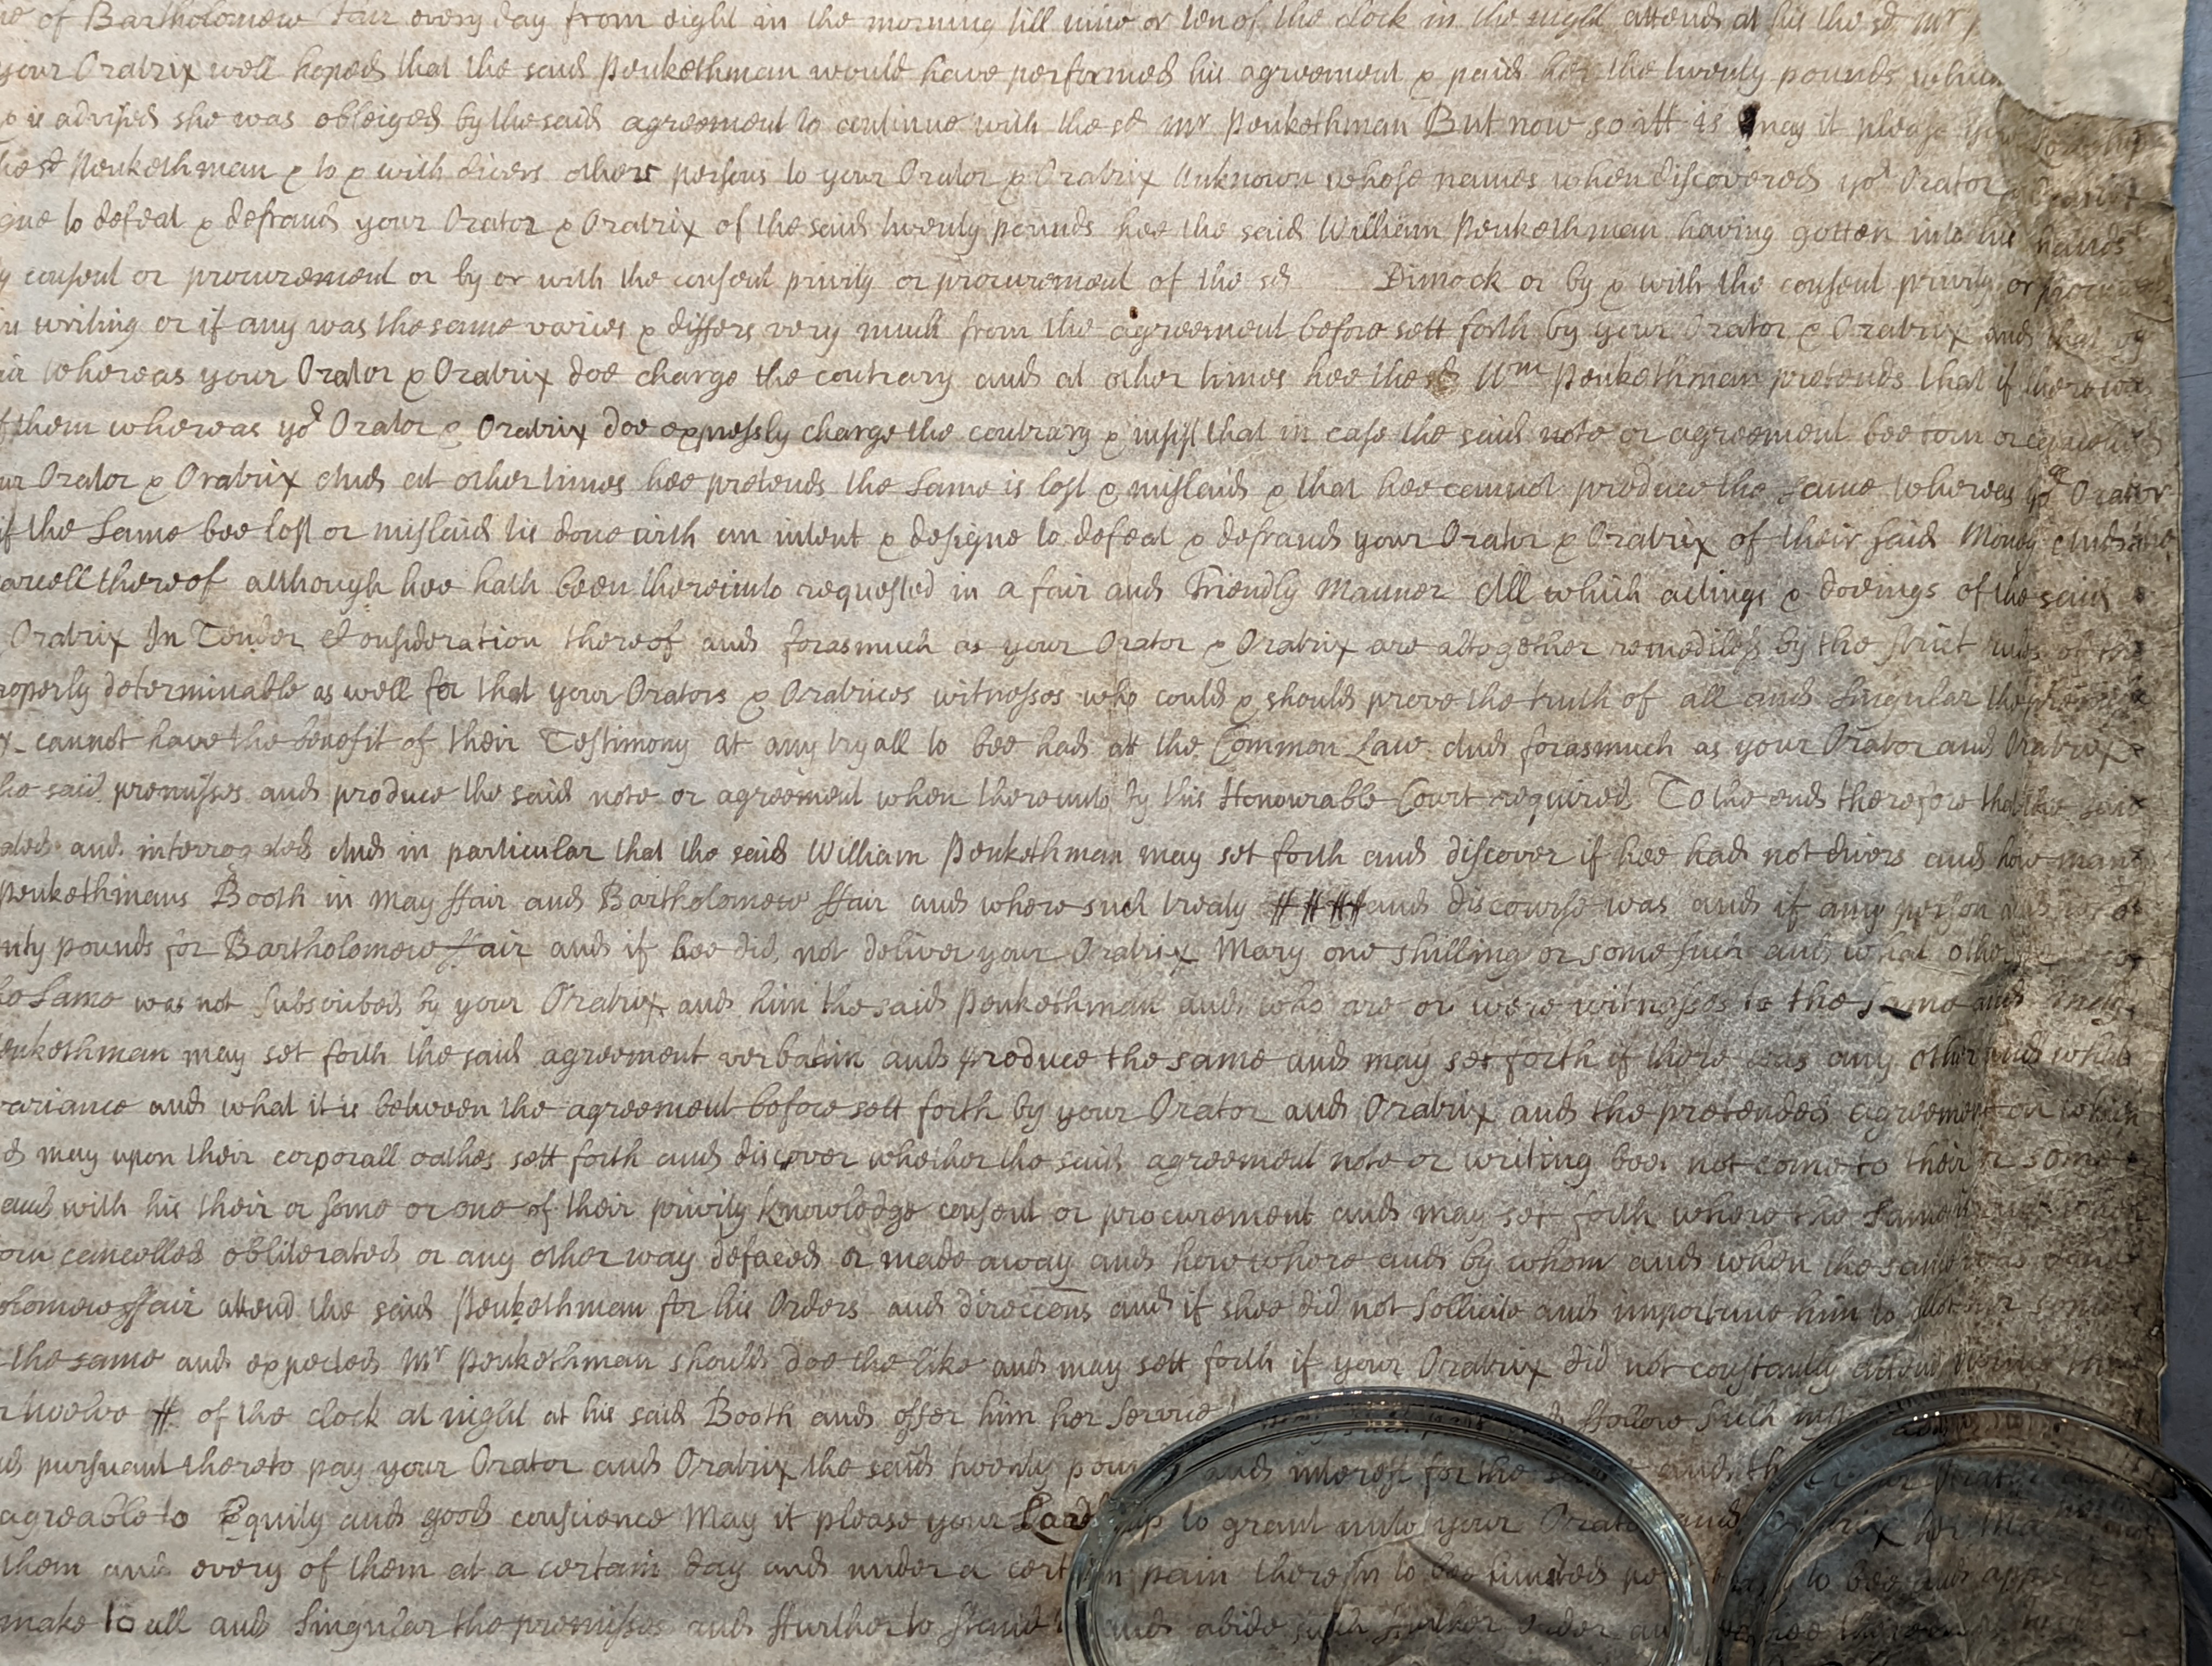 of Bartholomew Fair every day from eight in the morning till nine or ten of the clock in the night attend at his the sd Mr
your Oratrix well hoped that the said Penkethman would have performed his agreement & paid her the twenty pounds which
is advised she was obleiged by the said agreement to continue with the sd Mr Penkethman But now so itt is may it please your Lordship
the sd Penkethman & to & with divers others persons to your Orator & Oratrix Unknown whose names when discovered yor Orator & Oratrix
to defeat & defraud your Orator & Oratrix of the said twenty pounds hee the said William Penkethman having gotten into his hands
consent or procurement or by or with the consent privity or procurement of the sd Dimock or by & with the consent privity or
in writing or if any was the same varies & differs very much from the agreement before sett forth by your Orator & Oratrix and that
whereas your Orator & Oratrix doe charge the contrary and at other times hee the sd Wm Penkethman pretends that if there was
of them whereas yor Orator & Oratrix doe expressly charge the contrary & insist that in case the said note or agreement bee torn or cancelled
Orator & Oratrix And at other times hee pretends the same is lost & mislaid & that hee cannot produce the same whereas yor Orator
if the Same bee lost or mislaid tis done with an intent & designe to defeat & defraud your Orator & Oratrix of their said Money And
thereof although hee hath been thereunto requested in a fair and Friendly Manner All which actings & doeings of the said
Oratrix In Tender Consideration thereof and forasmuch as your Orator & Oratrix are altogether remediless by the strict rules of the
properly determinable as well for that your Orators & Oratrices witnesses who could & should prove the truth of all and Singular the premisses
cannot have the benefit of their Testimony at any tryall to bee had att the Common Law And forasmuch as your Orator and Oratrix
the said premisses and produce the said note or agreement when thereunto by this Honourable Court required To the end therefore that the said
and interrogated And in particular that the said William Penkethman may set forth and discover if hee had not divers and how many
Penkethmans Booth in May ffair and Bartholomew ffair and where such treaty and discourse was and if any person
pounds for Bartholomew ffair and if hee did not deliver your Oratrix Mary one shilling or some such and what other
the Same was not Subscribed by your Oratrix and him the said Penkethman and who are or were witnesses to the Same and
Penkethman may set forth the said agreement verbatim and produce the same and may set forth if there was any other and what
variance and what it is between the agreement before sett forth by your Orator and Oratrix and the pretended agreement on which
may upon their corporall oathes sett forth and discover whether the said agreement note or writing bee not come to their or some
and with his their or some or one of their privity knowledge consent or procurement and may set forth where the Same
cancelled obliterated or any other way defaced or made away and how where and by whom and when the same was done
ffair attend the said Penkethman for his Orders and direccons and if shee did not sollicite and importune him to
the same and expected Mr Penkethman should doe the like and may sett forth if your Oratrix did not constantly attend
twelve of the clock at night at his said Booth and offer him her Service
pursuant thereto pay your Orator and Oratrix the said twenty pounds and interest for the
agreable to Equity and good conscience May it please your Lordship to grant unto your Orator and Oratrix her
them and every of them at a certain day and under a certain pain therein to bee limited to bee and appear
make to all and Singular the premisses and ffurther to stand and abide such further Order